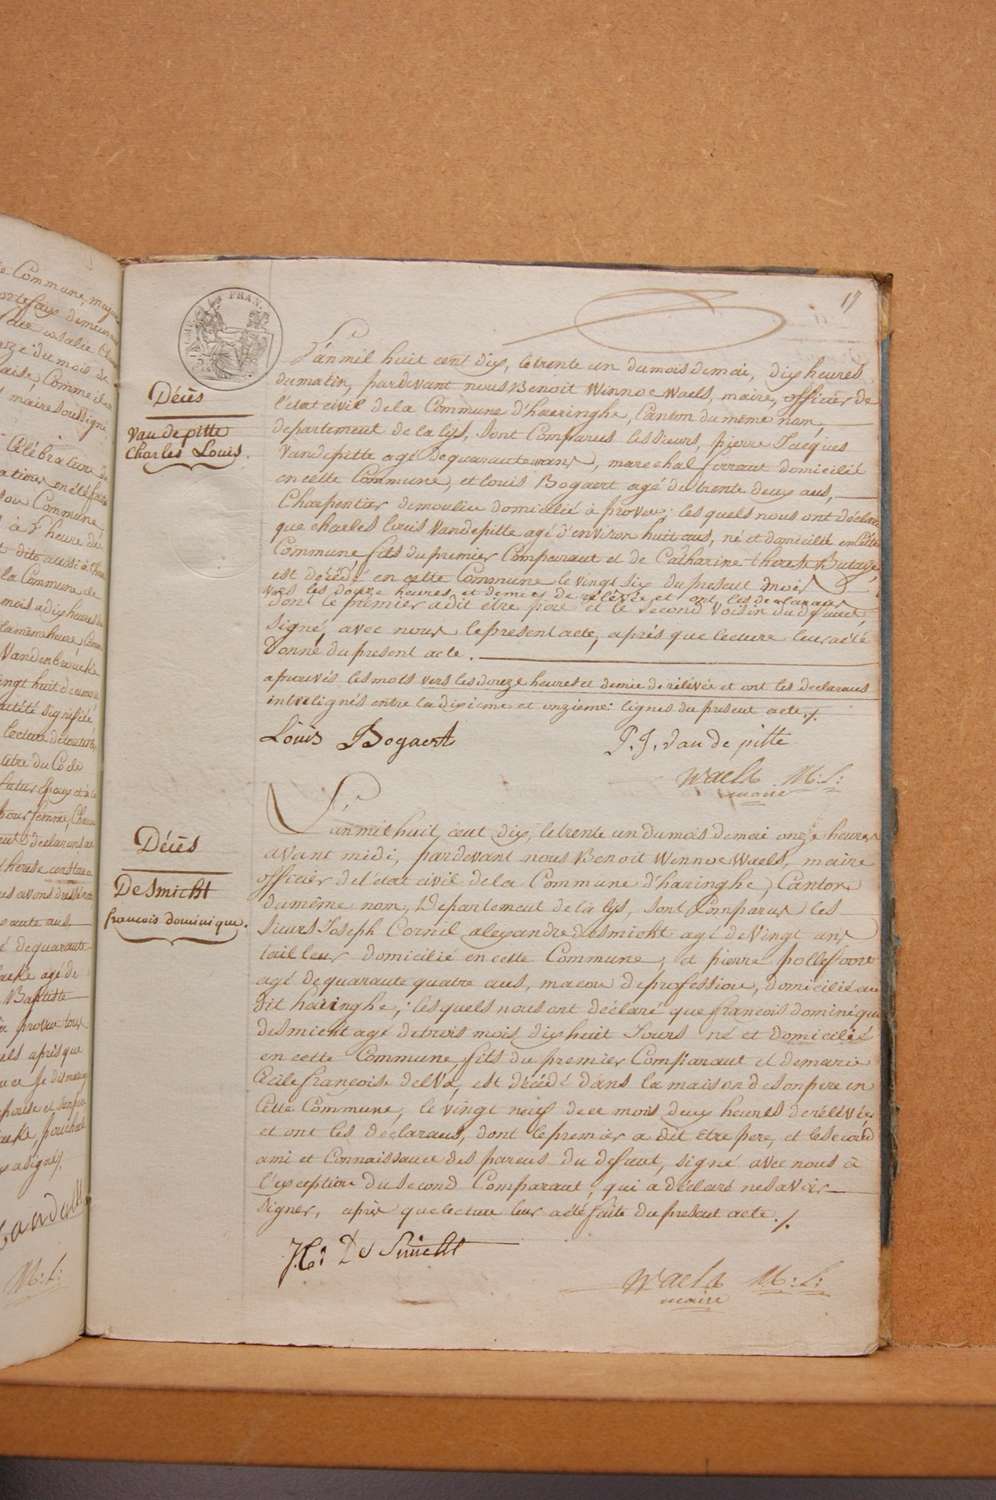 19
FRAN.
Décès
van de pitte
Charles Louis.
L'an mil huit cent dix, le trente un du mois de mai, dix heures
du matin, pardevant nous Benoit Winnoc Waels, maire, officier de
l'état civil de la Commune d'haeringhe, Canton du même nom,
departement de la lys, sont Comparus les sieurs, pierre Jacques
Vandepitte agé de quarante ans, marechal ferrant domicilié
en cette Commune, et Louis Bogaert agé de trente deux ans,
Charpentier de moulin domicilié à proven; les quels nous ont déclaré
que charles Louis Vandepitte agé d'environ huit ans, né et domicilié en cette
Commune fils du premier Comparant et de Catharine therese Butaye,
est décédé en cette Commune le vingt six du present mois
vers les douze heures et demies de rélévée et ont les declarans
dont le premier a dit être pere et le second voisin du defunt,
signé, avec nous le present acte, après que lecture leur a été
donné du present acte.
aprouvés les mots vers les douze heures et demie de rélévée et ont les déclarans
interlignés entre la dixieme et onzieme lignes du present acte./.
Louis Bogaert P. J. van de pitte
Waels M:L:
maire
Décès
De Smicht
francois dominique.
L'an mil huit cent dix, le trente un du mois de mai onze heures
avant midi, pardevant nous Benoit Winnoc Waels, maire
officier de l'état civil de la Commune d'haringhe, Canton
du même nom, Departement de la lys, sont Comparus les
sieurs Joseph Corneil alexandre desmicht agé de vingt ans
tailleur domicilié en cette Commune, et pierre pollefoort
agé de quarante quatre ans, macon de profession, domicilié au
dit haringhe; les quels nous ont déclaré que francois dominique
desmicht agé de trois mois dix huit Jours né et domicilié
en cette Commune fils du premier Comparant et de marie
Cecile françoise delva, est décédé dans la maison de son pere en
cette Commune, le vingt neuf de ce mois deux heures de rélévée
et ont les déclarans, dont le premier a dit Etre pere, et le second
ami et Connaissance des parens du defunt, signé avec nous à
l'exception du second Comparant, qui a déclaré ne savoir
signer, après que lecture leur a été faite du present acte./.
J.C: De Smicht
Waels M:L:
maire